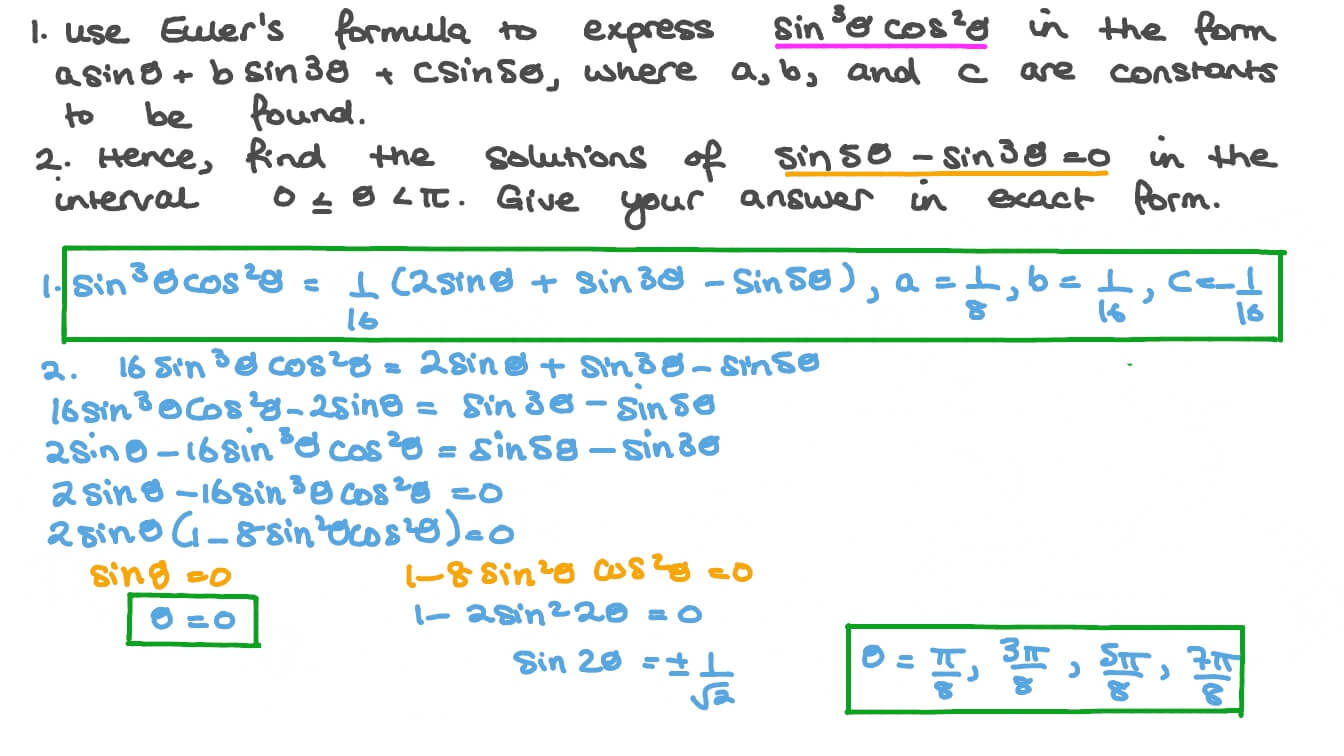 1. Use Euler's formula to express sin³θcos²θ in the form
asinθ + b sin3θ + csin5θ, where a, b, and c are constants
to be found.
2. Hence, find the solutions of sin5θ - sin3θ = 0 in the
interval 0 ≤ θ < π. Give your answer in exact form.
1. sin³θcos²θ = 1/16 (2sinθ + sin3θ - sin5θ), a = 1/8, b = 1/16, c = -1/16
2. 16 sin³θ cos²θ = 2sinθ + sin3θ - sin5θ
16sin³θcos²θ - 2sinθ = sin3θ - sin5θ
2sinθ - 16sin³θ cos²θ = sin5θ - sin3θ
2sinθ - 16sin³θ cos²θ = 0
2sinθ(1 - 8sin²θcos²θ) = 0
sinθ = 0 1 - 8 sin²θ cos²θ = 0
θ = 0 1 - 2sin²2θ = 0
sin 2θ = ± 1/√2
θ = π/8, 3π/8, 5π/8, 7π/8